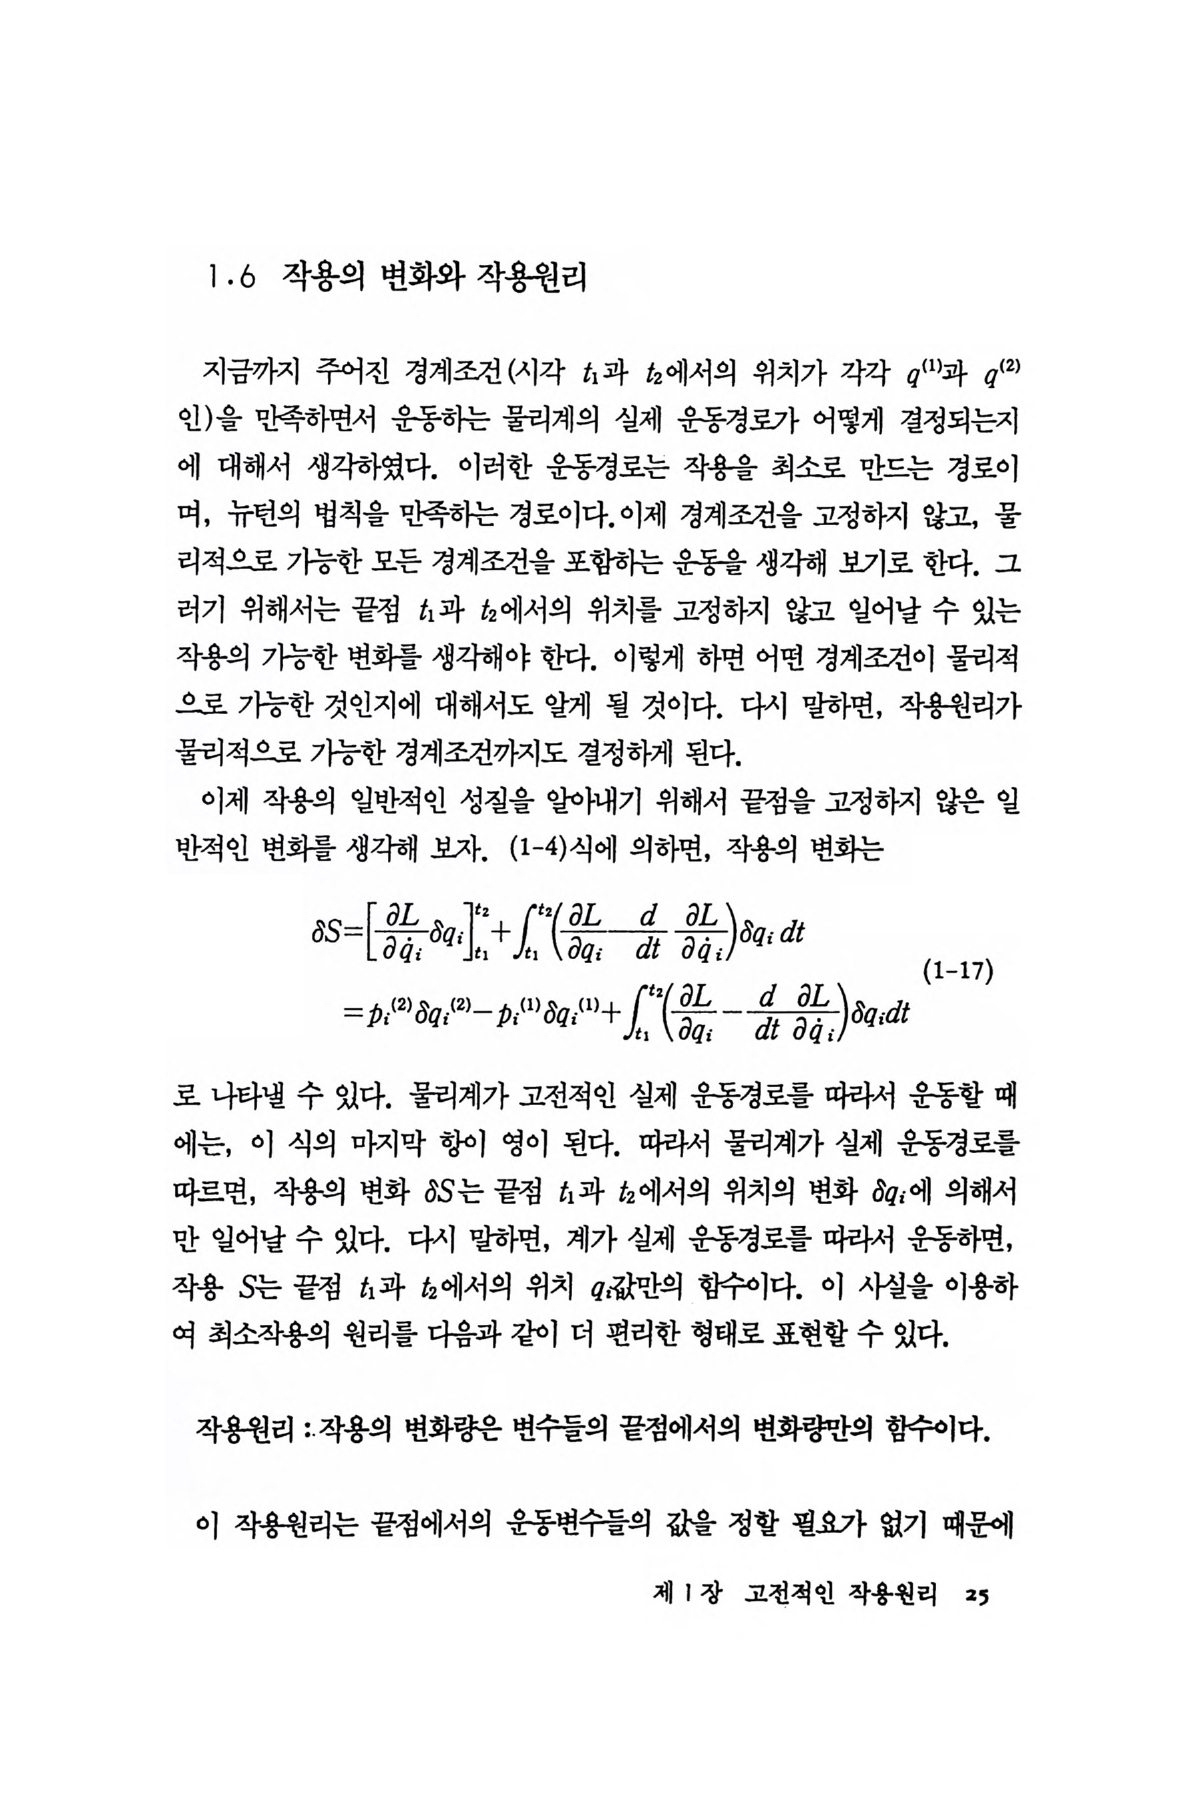 1.6 작용의 변화와 작용원리
지금까지 주어진 경계조건(시각 t₁과 t₂에서의 위치가 각각 q⁽¹⁾과 q⁽²⁾
인)을 만족하면서 운동하는 물리계의 실제 운동경로가 어떻게 결정되는지
에 대해서 생각하였다. 이러한 운동경로는 작용을 최소로 만드는 경로이
며, 뉴턴의 법칙을 만족하는 경로이다.이제 경계조건을 고정하지 않고, 물
리적으로 가능한 모든 경계조건을 포함하는 운동을 생각해 보기로 한다. 그
러기 위해서는 끝점 t₁과 t₂에서의 위치를 고정하지 않고 일어날 수 있는
작용의 가능한 변화를 생각해야 한다. 이렇게 하면 어떤 경계조건이 물리적
으로 가능한 것인지에 대해서도 알게 될 것이다. 다시 말하면, 작용원리가
물리적으로 가능한 경계조건까지도 결정하게 된다.
이제 작용의 일반적인 성질을 알아내기 위해서 끝점을 고정하지 않은 일
반적인 변화를 생각해 보자. (1-4)식에 의하면, 작용의 변화는
δS=[∂L/∂q̇ᵢ δqᵢ]ₜ₁ᵗ² + ∫ₜ₁ᵗ²(∂L/∂qᵢ − d/dt ∂L/∂q̇ᵢ)δqᵢ dt
(1-17)
=pᵢ⁽²⁾δqᵢ⁽²⁾−pᵢ⁽¹⁾δqᵢ⁽¹⁾+∫ₜ₁ᵗ²(∂L/∂qᵢ − d/dt ∂L/∂q̇ᵢ)δqᵢdt
로 나타낼 수 있다. 물리계가 고전적인 실제 운동경로를 따라서 운동할 때
에는, 이 식의 마지막 항이 영이 된다. 따라서 물리계가 실제 운동경로를
따르면, 작용의 변화 δS는 끝점 t₁과 t₂에서의 위치의 변화 δqᵢ에 의해서
만 일어날 수 있다. 다시 말하면, 계가 실제 운동경로를 따라서 운동하면,
작용 S는 끝점 t₁과 t₂에서의 위치 qᵢ값만의 함수이다. 이 사실을 이용하
여 최소작용의 원리를 다음과 같이 더 편리한 형태로 표현할 수 있다.
작용원리 : 작용의 변화량은 변수들의 끝점에서의 변화량만의 함수이다.
이 작용원리는 끝점에서의 운동변수들의 값을 정할 필요가 없기 때문에
제 1 장 고전적인 작용원리 25